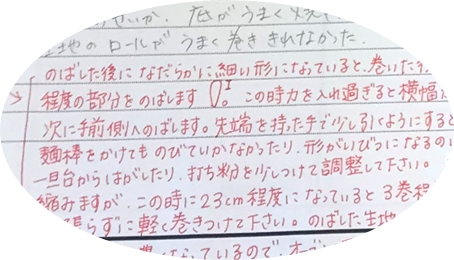 せいか、底がうまく焼
生地のロールがうまく巻ききれなかった.
のばした後になだらかに細い形になっていると、巻いた
程度の部分をのばします この時力を入れ過ぎると横幅
次に手前側へのばします。先端を持った手で少し引くようにすると
麺棒をかけてものびていかなかったり、形がいびつになるの
一旦台からはがしたり、打ち粉を少しつけて調整して下さい。
縮みますが、この時に23cm程度になっていると3巻程
張らずに軽く巻きつけて下さい。のばした生地
なっているので、オーブ